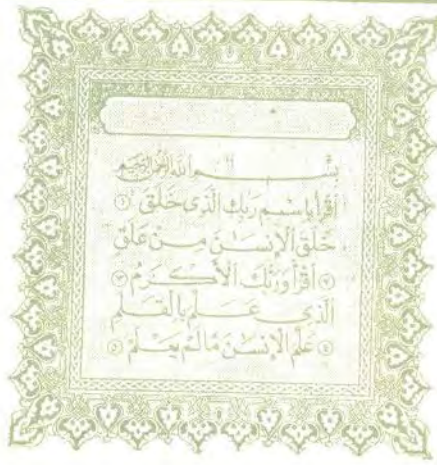 بسم الله الرحمن الرحيم
اقرأ باسم ربك الذي خلق ١
خلق الإنسن من علق
٢ اقرأ وربك الأكرم ٣
الذي علم بالقلم
٤ علم الإنسن ما لم يعلم ٥